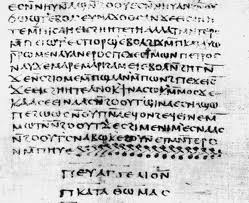 ⲉⲥⲛ̄ⲛⲏⲩ ⲛ̄ⲁϣ ⲛ̄ϩⲟⲟⲩ ⲉⲥⲛ̄ⲛⲏⲩ ⲁⲛ ϩⲛ ⲟⲩ
ϭⲱϣⲧ ⲉⲃⲟⲗ ⲉⲩⲛⲁϫⲟⲟⲥ ⲁⲛ ϫⲉ ⲉⲓⲥϩⲏⲏ
ⲧⲉ ⲙ̄ⲡⲓⲥⲁ ⲏ ⲉⲓⲥϩⲏⲏⲧⲉ ⲧⲏ ⲁⲗⲗⲁ ⲧⲙⲛ̄ⲧⲉⲣⲟ
ⲙ̄ⲡⲉⲓⲱⲧ ⲉⲥⲡⲟⲣϣ ⲉⲃⲟⲗ ϩⲓϫⲙ̄ ⲡⲕⲁϩ ⲁⲩⲱ
ⲣ̄ⲣⲱⲙⲉ ⲛⲁⲩ ⲁⲛ ⲉⲣⲟⲥ ⲡⲉϫⲉ ⲥⲓⲙⲱⲛ ⲡⲉⲧⲣⲟⲥ
ⲛⲁⲩ ϫⲉ ⲙⲁⲣⲉ ⲙⲁⲣⲓϩⲁⲙ ⲉⲓ ⲉⲃⲟⲗ ⲛ̄ϩⲏⲧⲛ̄
ϫⲉ ⲛ̄ⲥϩⲓⲟⲙⲉ ⲙ̄ⲡϣⲁ ⲁⲛ ⲙ̄ⲡⲱⲛϩ ⲡⲉϫⲉ ⲓ̄ⲥ̄
ϫⲉ ⲉⲓⲥϩⲏⲏⲧⲉ ⲁⲛⲟⲕ ϯⲛⲁⲥⲱⲕ ⲙ̄ⲙⲟⲥ ϫⲉ
ⲕⲁⲁⲥ ⲉⲉⲓⲛⲁⲁⲥ ⲛ̄ϩⲟⲟⲩⲧ ϣⲓⲛⲁ ⲉⲥⲛⲁϣⲱ
ⲡⲉ ϩⲱⲱⲥ ⲛ̄ⲟⲩⲡⲛ̄ⲁ̄ ⲉϥⲟⲛϩ ⲉϥⲉⲓⲛⲉ ⲙ̄
ⲙⲱⲧⲛ̄ ⲛ̄ϩⲟⲟⲩⲧ ϫⲉ ⲥϩⲓⲙⲉ ⲛⲓⲙ ⲉⲥⲛⲁⲁⲥ
ⲛ̄ϩⲟⲟⲩⲧ ⲥⲛⲁⲃⲱⲕ ⲉϩⲟⲩⲛ ⲉⲧⲙⲛ̄ⲧⲉⲣⲟ
ⲛⲙ̄ⲡⲏⲩⲉ
ⲡⲉⲩⲁⲅⲅⲉⲗⲓⲟⲛ
ⲡⲕⲁⲧⲁ ⲑⲱⲙⲁⲥ